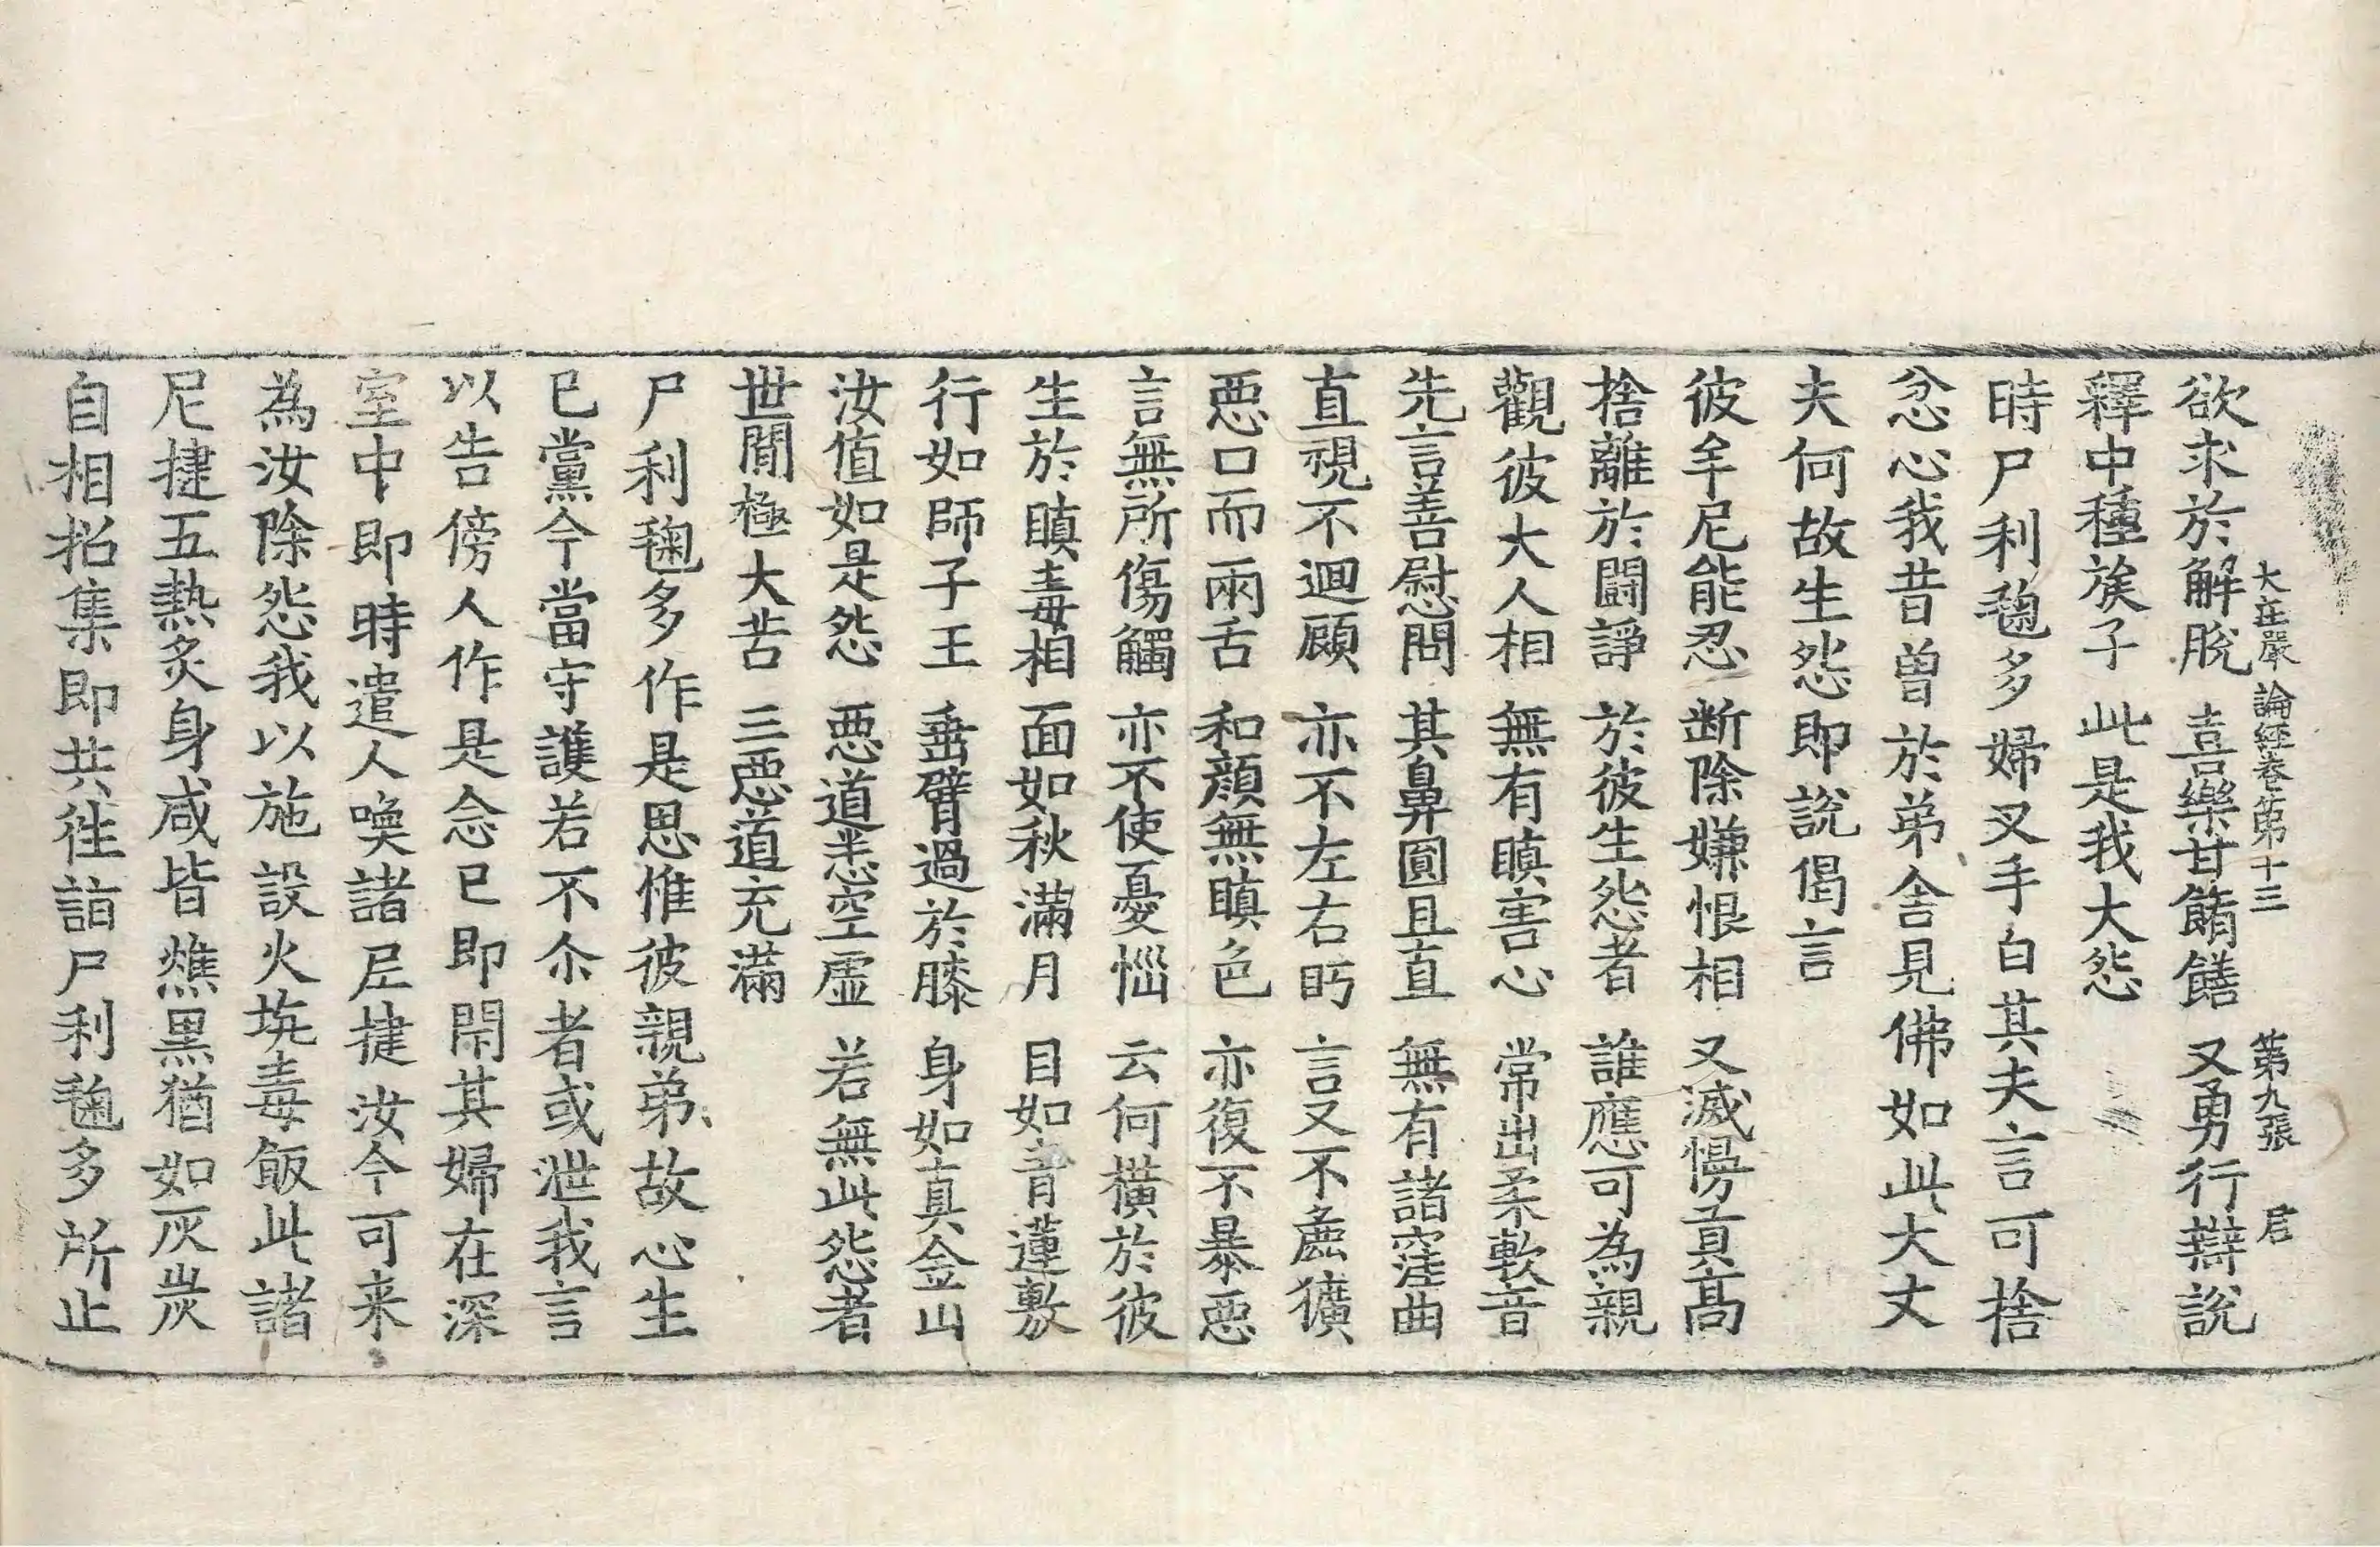 大庄嚴論經卷第十三 第九張 㞐
欲求於解脫 喜樂甘餚饍 又勇行辯說
釋中種族子 此是我大怨
時尸利毱多婦叉手白其夫言可捨
忿心我昔曾於弟舍見佛如此大丈
夫何故生怨即說偈言
彼牟尼能忍 断除嫌恨相 又滅慢貢高
捨離於鬪諍 於彼生怨者 誰應可為親
觀彼大人相 無有瞋害心 常出柔軟音
先言善慰問 其鼻圓且直 無有諸窪曲
直視不迴顧 亦不左右眄 言又不麁獷
惡口而兩舌 和顏無瞋色 亦復不暴惡
言無所傷觸 亦不使憂惱 云何橫於彼
生於瞋毒相 面如秋滿月 目如青蓮敷
行如師子王 垂臂過於膝 身如真金山
汝值如是怨 惡道悉空虛 若無此怨者
世間極大苦 三惡道充滿
尸利毱多作是思惟彼親弟故心生
已黨今當守護若不尒者或泄我言
以告傍人作是念已即閇其婦在深
室中即時遣人喚諸尼揵汝今可来
為汝除怨我以施設火坑毒飯此諸
尼揵五熱炙身咸皆燋黑猶如灰炭
自相招集即共往詣尸利毱多所止